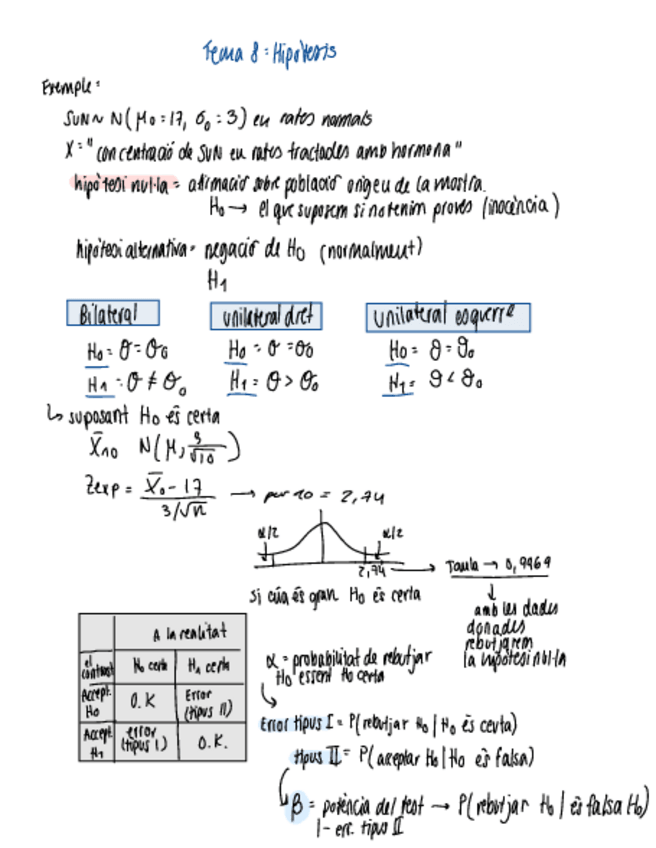 Tema 8: Hipòtesis
Exemple:
SUN ~ N(μ₀=17, σ₀=3) en rates normals
X="concentració de SUN en rates tractades amb hormona"
hipòtesi nul·la = afirmació sobre població origen de la mostra.
H₀ → el que suposem si no tenim proves (inocència)
hipòtesi alternativa = negació de H₀ (normalment)
H₁
Bilateral
H₀ = θ = θ₀
H₁ : θ ≠ θ₀
unilateral dret
H₀ : θ = θ₀
H₁ = θ > θ₀
Unilateral esquerre
H₀ = θ = θ₀
H₁ = θ < θ₀
↳ suposant H₀ és certa
X̄₁₀ N(μ, 3/√10)
Zexp = X̄₀ - 17 / 3/√n → per 10 = 2,74
α/2 α/2
2,74 → Taula → 0,9969
si cúa és gran H₀ és certa
↓
amb les dades
donades
rebutjarem
la hipòtesi nul·la
A la realitat
el contrast H₀ certa H₁ certa
Accept. H₀ O.K Error (tipus II)
Accept H₁ error (tipus I) O.K.
α = probabilitat de rebutjar
H₀ essent H₀ certa
Error tipus I = P(rebutjar H₀ | H₀ és certa)
tipus II = P(acceptar H₀ | H₀ és falsa)
β = potència del test → P(rebutjar H₀ | és falsa H₀)
1 - err. tipus II